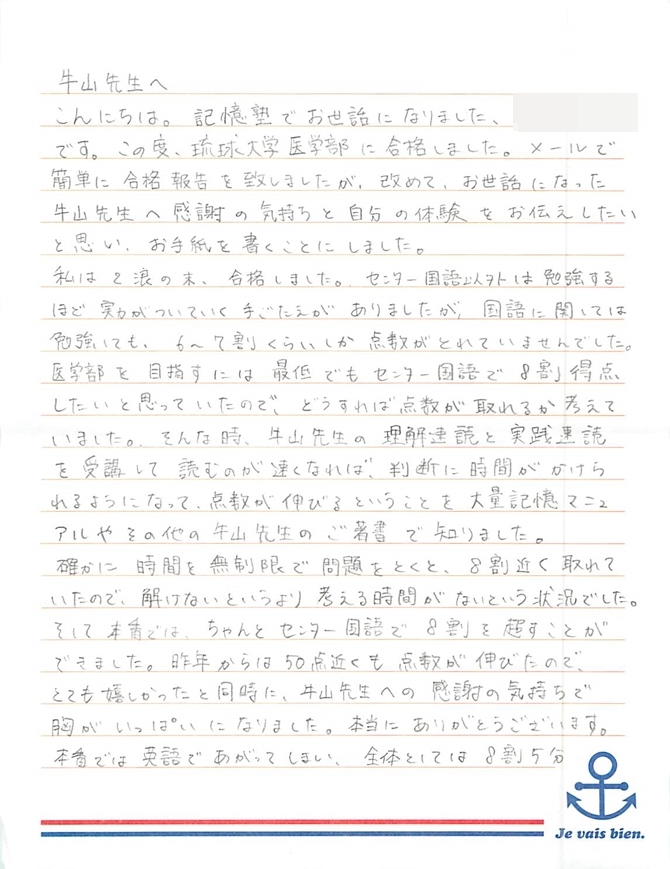 牛山先生へ
こんにちは。記憶塾でお世話になりました、
です。この度、琉球大学医学部に合格しました。メールで
簡単に合格報告を致しましたが、改めて、お世話になった
牛山先生へ感謝の気持ちと自分の体験をお伝えしたい
と思い、お手紙を書くことにしました。
私は2浪の末、合格しました。センター国語以外は勉強する
ほど実力がついていく手ごたえがありましたが、国語に関しては
勉強しても、6〜7割くらいしか点数がとれていませんでした。
医学部を目指すには最低でもセンター国語で8割得点
したいと思っていたので、どうすれば点数が取れるか考えて
いました。そんな時、牛山先生の理解速読と実践速読
を受講して読むのが速くなれば、判断に時間がかけら
れるようになって、点数が伸びるということを大量記憶マニュ
アルやその他の牛山先生のご著書で知りました。
確かに時間を無制限で問題をとくと、8割近く取れて
いたので、解けないというより考える時間がないという状況でした。
そして本番では、ちゃんとセンター国語で8割を超すことが
できました。昨年からは50点近くも点数が伸びたので、
とても嬉しかったと同時に、牛山先生への感謝の気持ちで
胸がいっぱいになりました。本当にありがとうございます。
本番では英語であがってしまい、全体としては8割5分
Je vais bien.